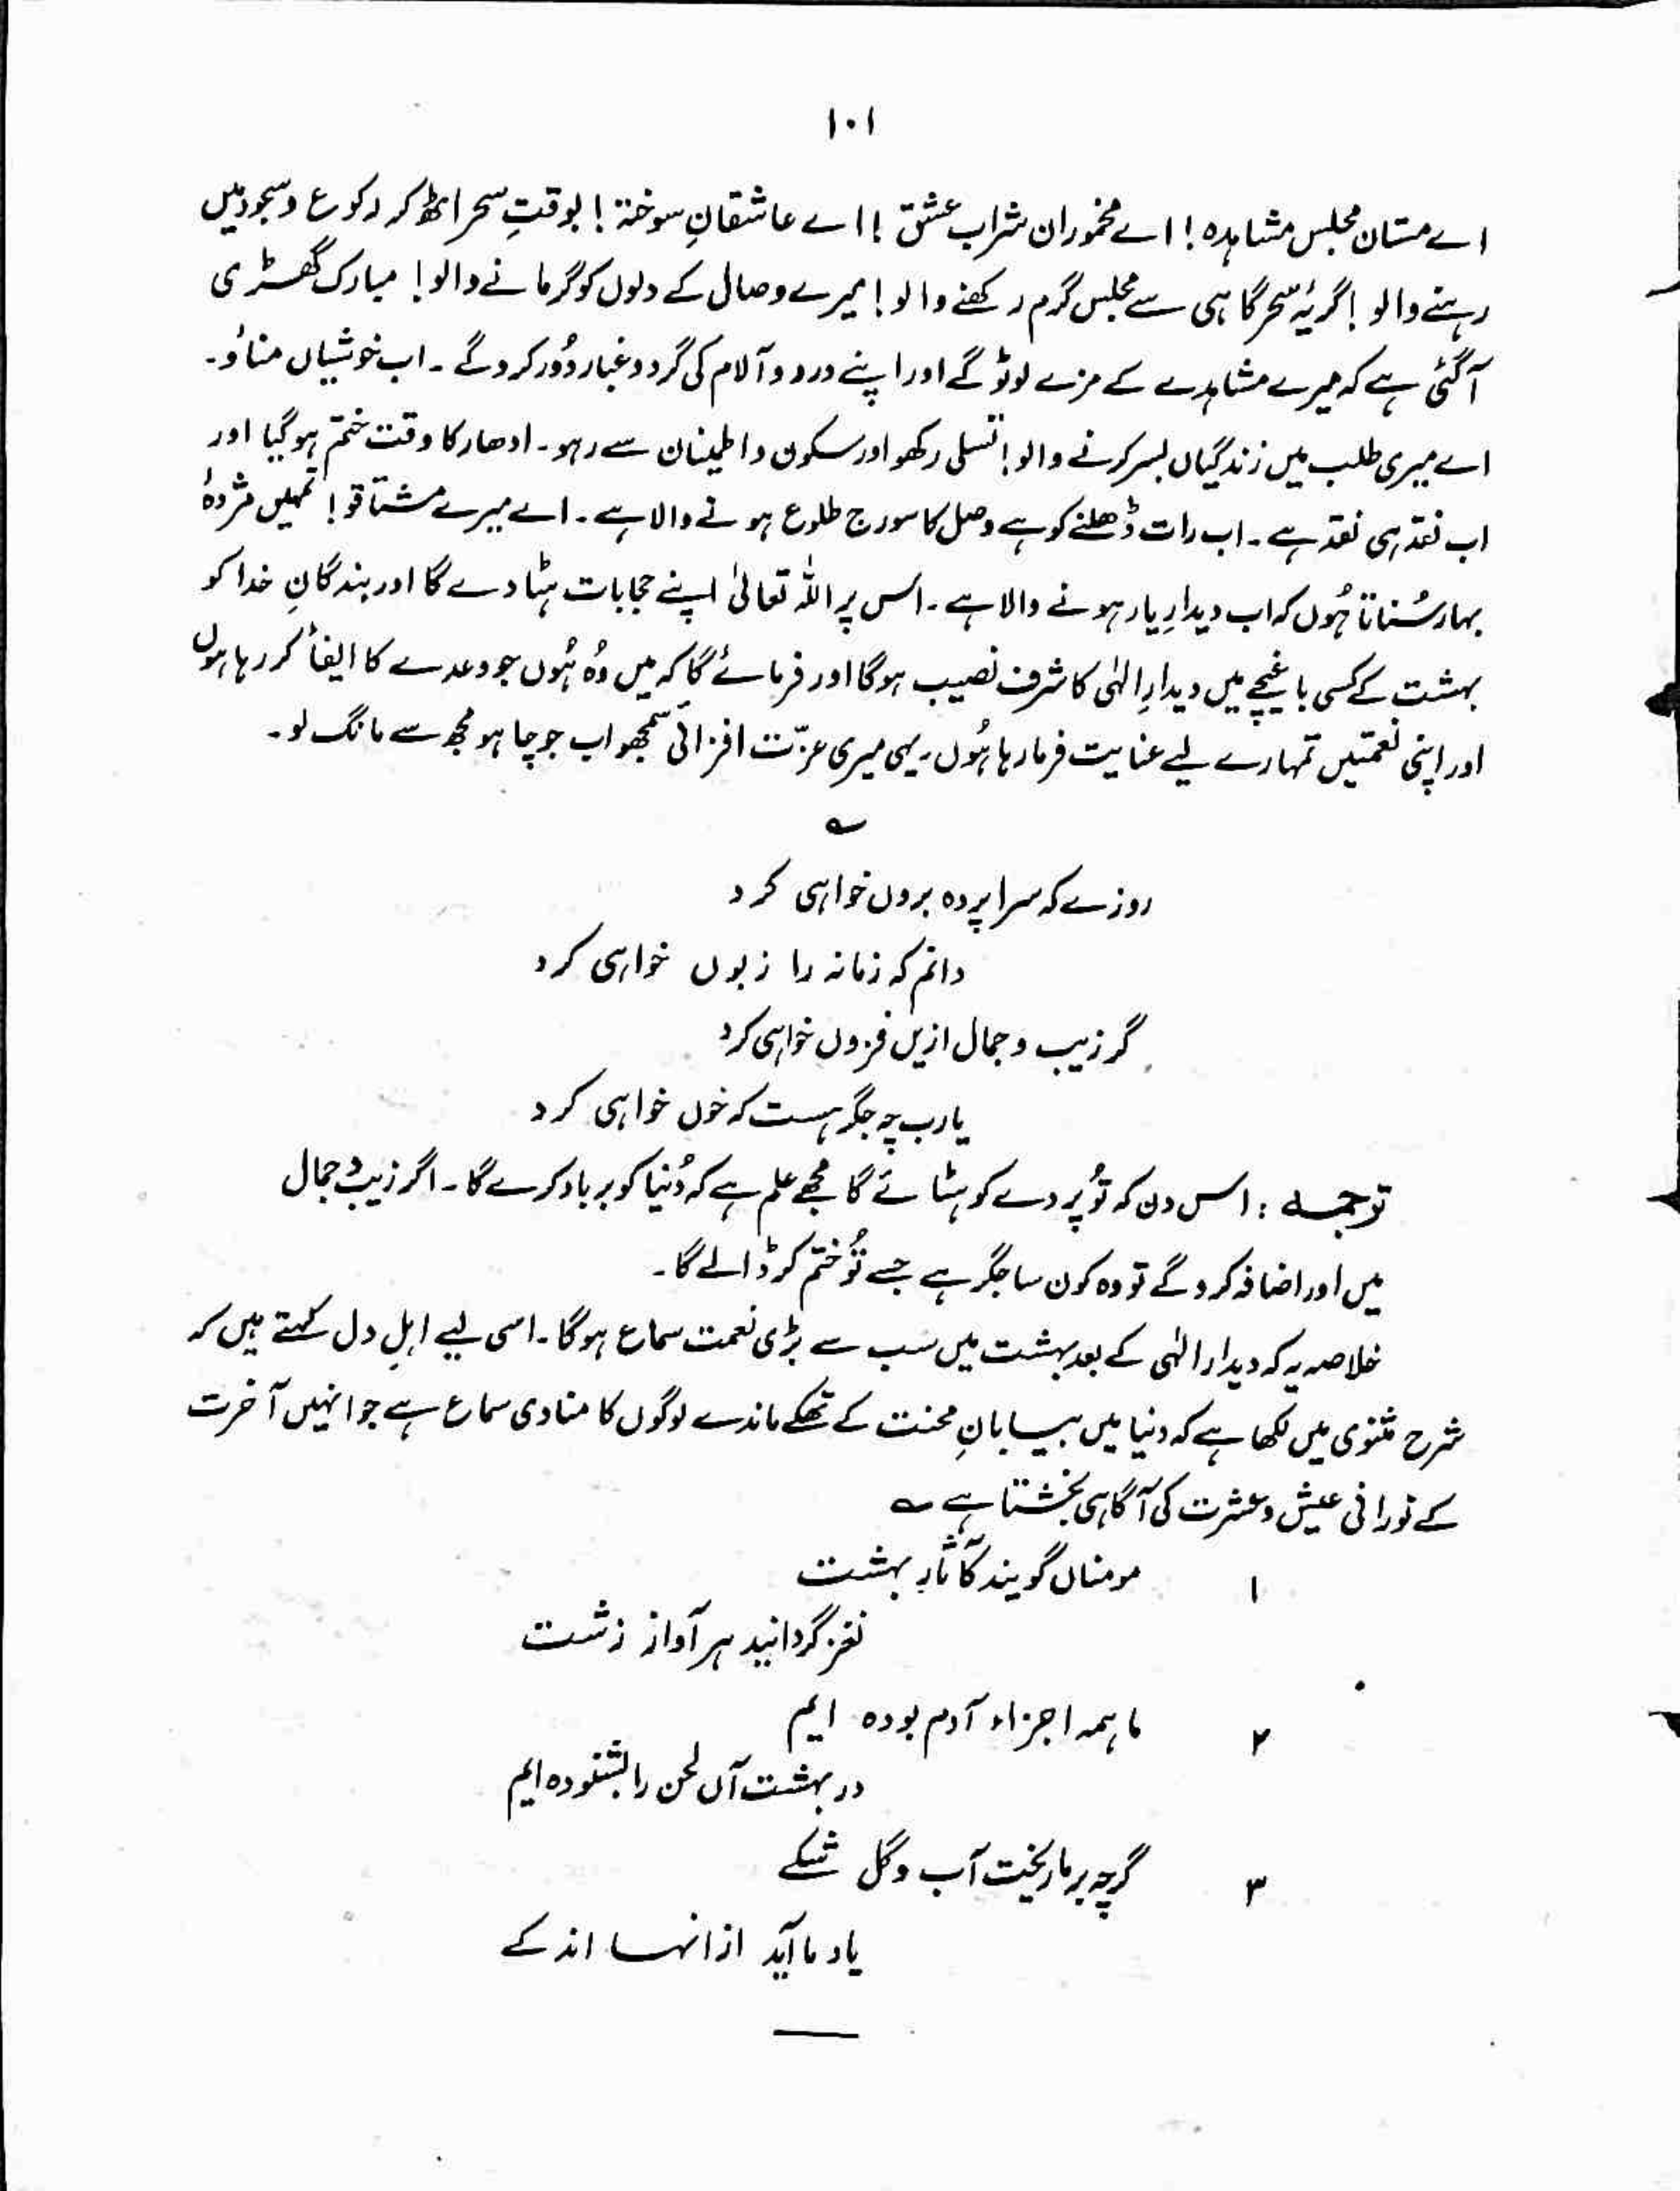 ۱۰۱
اے مستان مجلس مشاہدہ! اے مخموران شراب عشق! اے عاشقانِ سوختہ! بوقتِ سحر اٹھ کر رکوع و سجود میں
رہنے والو! گریۂ سحر گاہی سے مجلس گرم رکھنے والو! میرے وصال کے دلوں کو گرمانے والو! مبارک گھڑی
آگئی ہے کہ میرے مشاہدے کے مزے لوٹو گے اور اپنے درد و آلام کی گرد و غبار دُور کرو گے۔ اب خوشیاں مناؤ۔
اے میری طلب میں زندگیاں بسر کرنے والو! تسلی رکھو اور سکون و اطمینان سے رہو۔ ادھار کا وقت ختم ہو گیا اور
اب نقد ہی نقد ہے۔ اب رات ڈھلنے کو ہے وصل کا سورج طلوع ہونے والا ہے۔ اے میرے مشتاقو! تمہیں مژدۂ
بہار سُناتا ہُوں کہ اب دیدارِ یار ہونے والا ہے۔ اس پر اللہ تعالیٰ اپنے حجابات ہٹا دے گا اور بندگانِ خدا کو
بہشت کے کسی باغیچے میں دیدارِ الٰہی کا شرف نصیب ہوگا اور فرمائے گا کہ میں وُہ ہُوں جو وعدے کا ایفأ کر رہا ہوں
اور اپنی نعمتیں تمہارے لیے عنایت فرما رہا ہُوں۔ یہی میری عزّت افزائی سمجھو اب جو چاہو مجھ سے مانگ لو۔
؎
روزے کہ سراپردہ بروں خواہی کرد
دانم کہ زمانہ را زبوں خواہی کرد
گر زیب و جمال ازیں فزوں خواہی کرد
یارب چہ جگر ہست کہ خوں خواہی کرد
ترجمہ: اس دن کہ تُو پردے کو ہٹائے گا مجھے علم ہے کہ دُنیا کو برباد کرے گا۔ اگر زیب و جمال
میں اور اضافہ کرو گے تو وہ کون سا جگر ہے جسے تُو ختم کر ڈالے گا۔
خلاصہ یہ کہ دیدار الٰہی کے بعد بہشت میں سب سے بڑی نعمت سماع ہوگا۔ اسی لیے اہلِ دل کہتے ہیں کہ
شرح مثنوی میں لکھا ہے کہ دنیا میں بیابانِ محنت کے تھکے ماندے لوگوں کا منادی سماع ہے جو انہیں آخرت
کے نورانی عیش و عشرت کی آگاہی بخشتا ہے ؎
۱ مومناں گویند کآثارِ بہشت
نغز گردانید ہر آواز زشت
۲ ما ہمہ اجزاء آدم بودہ ایم
در بہشت آں لحن را بشنودہ ایم
۳ گرچہ بر ما ریخت آب و گل شکے
یاد ما آید ازانہا اندکے